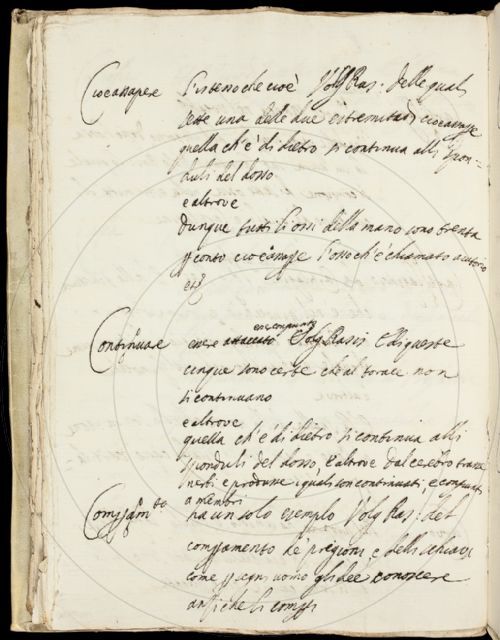 Cioeassapere l'istesso che cioè Volg Ras: delle quali
sette una delle due estremitadi cioeassape
quella ch'è di dietro si continua alli spon=
duli del dosso
e altrove
dunque tutti li ossi della mano sono trenta
conto cioeassape l'osso ch'è chiamato
Continuare essere attaccato e congiunto Volg Rasis E di queste
cinque sono certe che al torace non
si continuano
e altrove
quella ch'è di dietro si continua alli
sponduli del dosso, e altrove dal cerebro trasse
nerbi e produsse, i quali son continuati, e congiunti
a membri
ha un solo esempio Volg Ras: del
de prigioni, e delli schiavi
come ogni uomo gli dee conoscere
anzi che li